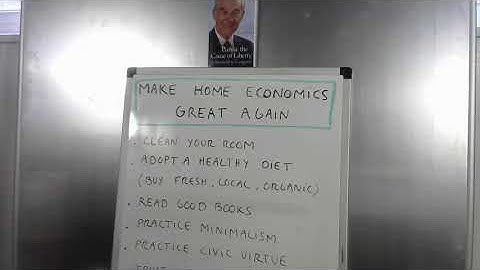 the
Cause of Liberty
MAKE HOME ECONOMICS
GREAT AGAIN
• CLEAN YOUR ROOM
• ADOPT A HEALTHY DIET
(BUY FRESH, LOCAL, ORGANIC)
• READ GOOD BOOKS
• PRACTICE MINIMALISM
• PRACTICE CIVIC VIRTUE